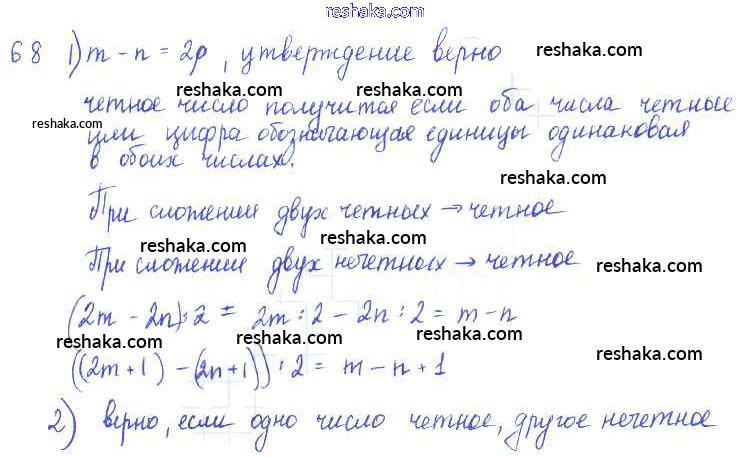 reshaka.com
68 1) m - n = 2p, утверждение верно
reshaka.com
reshaka.com
четное число получится если оба числа четные
reshaka.com
или цифра обозначающая единицы одинаковая
reshaka.com
в обоих числах.
reshaka.com
При сложении двух четных → четное
reshaka.com
reshaka.com
При сложении двух нечетных → четное
reshaka.com
(2m - 2n) : 2 = 2m : 2 - 2n : 2 = m - n
reshaka.com
reshaka.com
reshaka.com
((2m+1) - (2n+1)) : 2 = m - n + 1
reshaka.com
2) верно, если одно число четное, другое нечетное